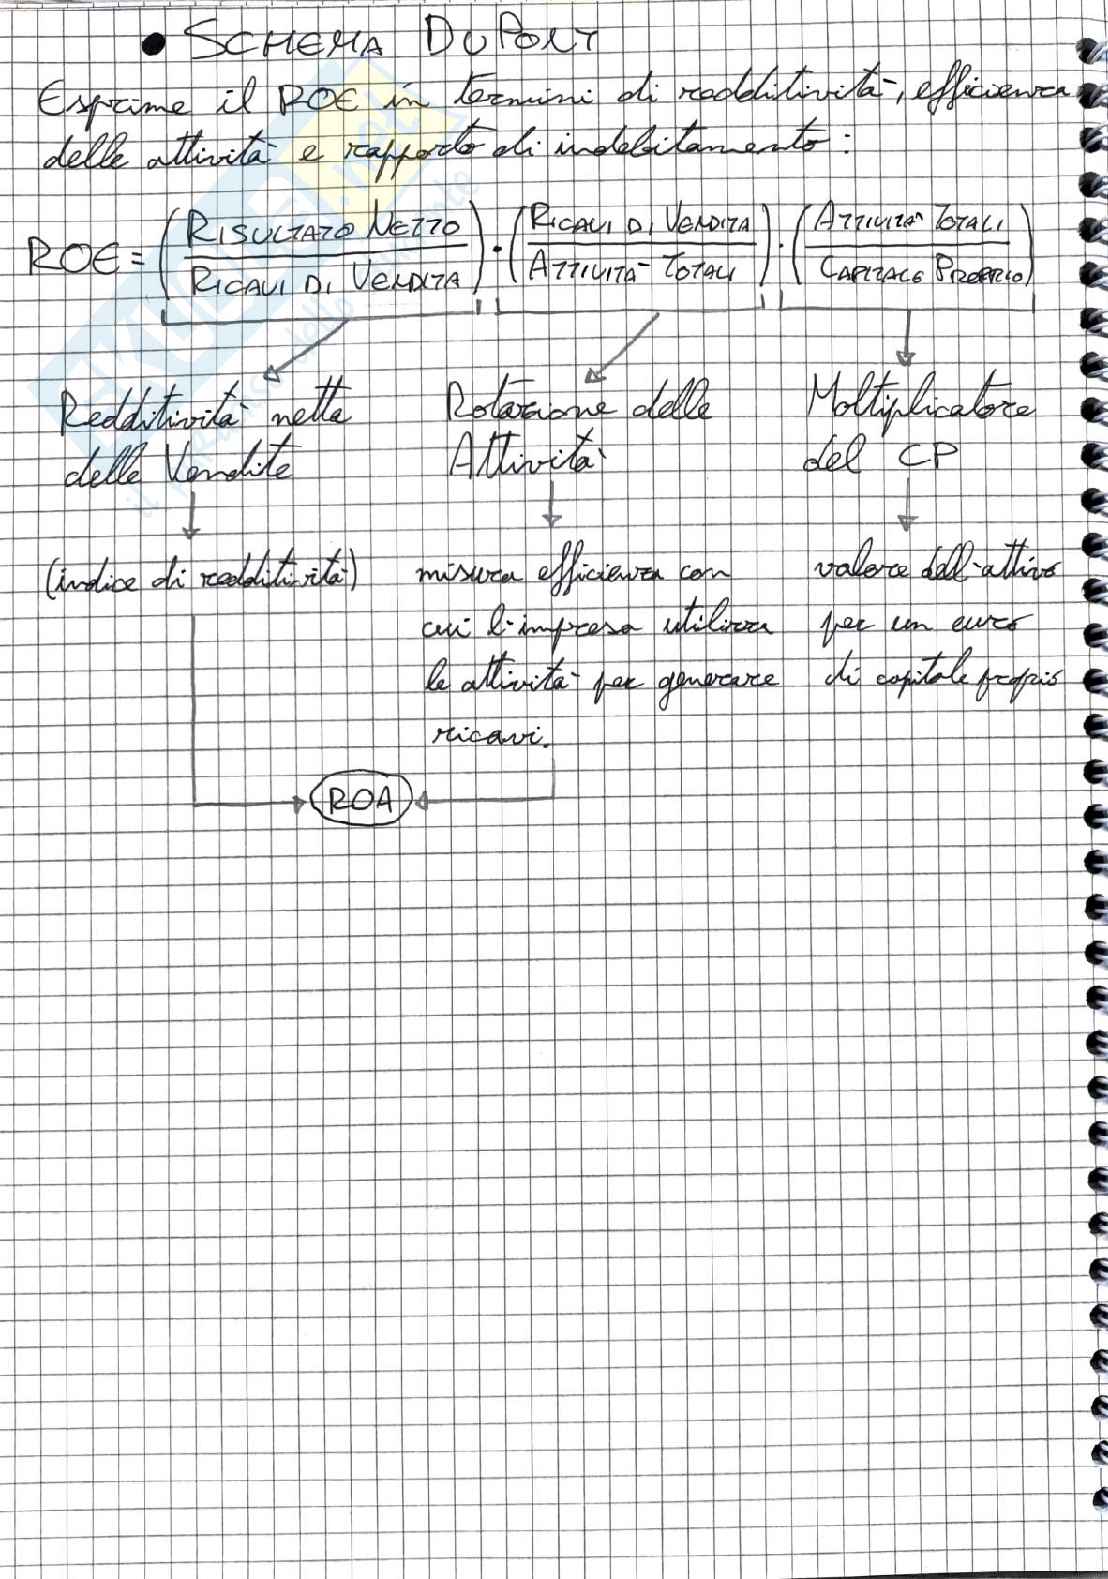 • SCHEMA DUPONT
Esprime il ROE in termini di redditività, efficienza
delle attività e rapporto di indebitamento:
ROE = (RISULTATO NETTO / RICAVI DI VENDITA) · (RICAVI DI VENDITA / ATTIVITÀ TOTALI) · (ATTIVITÀ TOTALI / CAPITALE PROPRIO)
Redditività netta
delle Vendite
Rotazione delle
Attività
Moltiplicatore
del CP
(indice di redditività)
misura efficienza con
cui l'impresa utilizza
le attività per generare
ricavi.
valore dell'attivo
per un euro
di capitale proprio
ROA